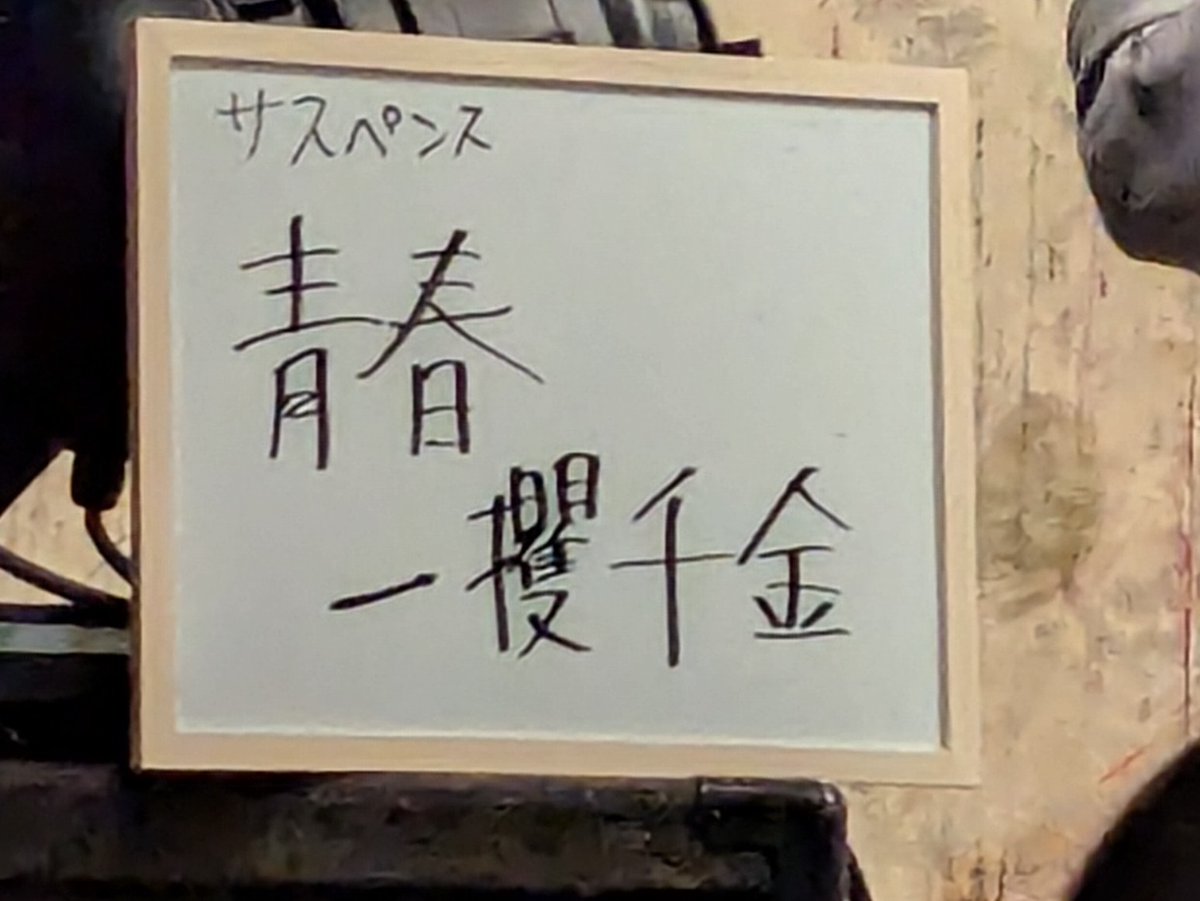 サスペンス
青春
一攫千金